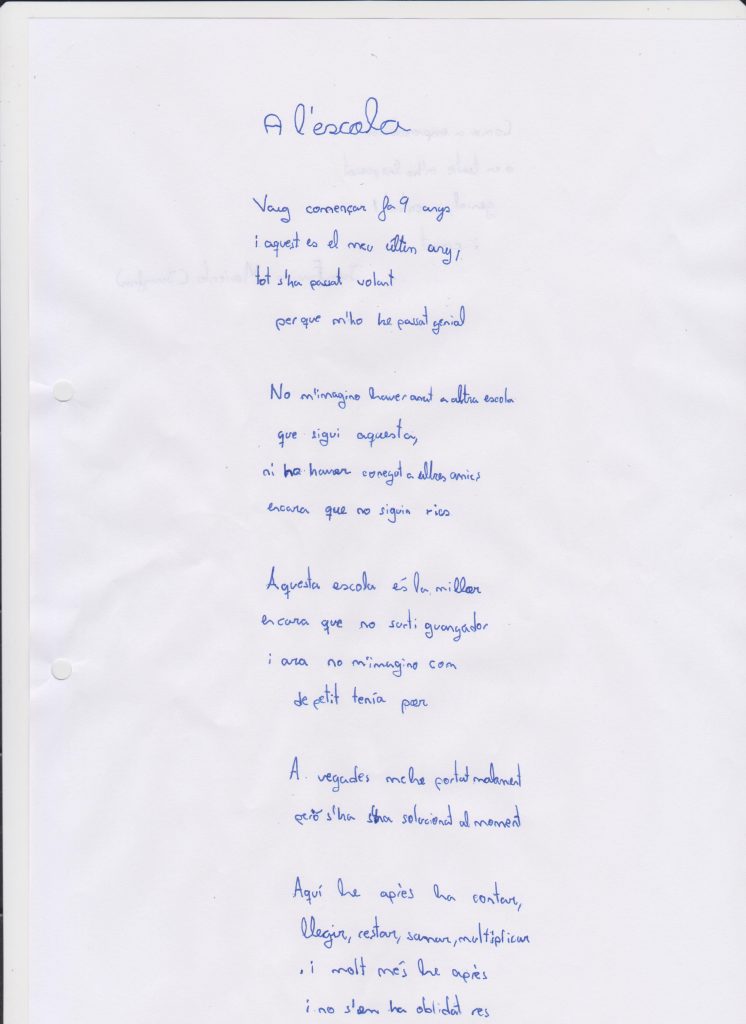 A l'escola
Vaig començar fa 9 anys
i aquest es el meu últim any,
tot s'ha passat volant
perque m'ho he passat genial
No m'imagino haver anat a altra escola
que sigui aquesta,
ni haver conegut a altres amics
encara que no siguin rics
Aquesta escola és la millor
encara que no surti guanyador
i ara no m'imagino com
de petit tenía por
A vegades me he portat malament
però s'ha s'ha solucionat al moment
Aquí he après ha contar,
llegir, restar, sumar, multiplicar
, i molt més he après
i no s'em ha oblidat res